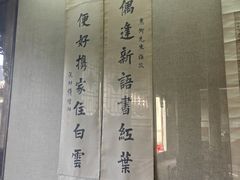 偶逢新語書紅葉
便好携家住白雲